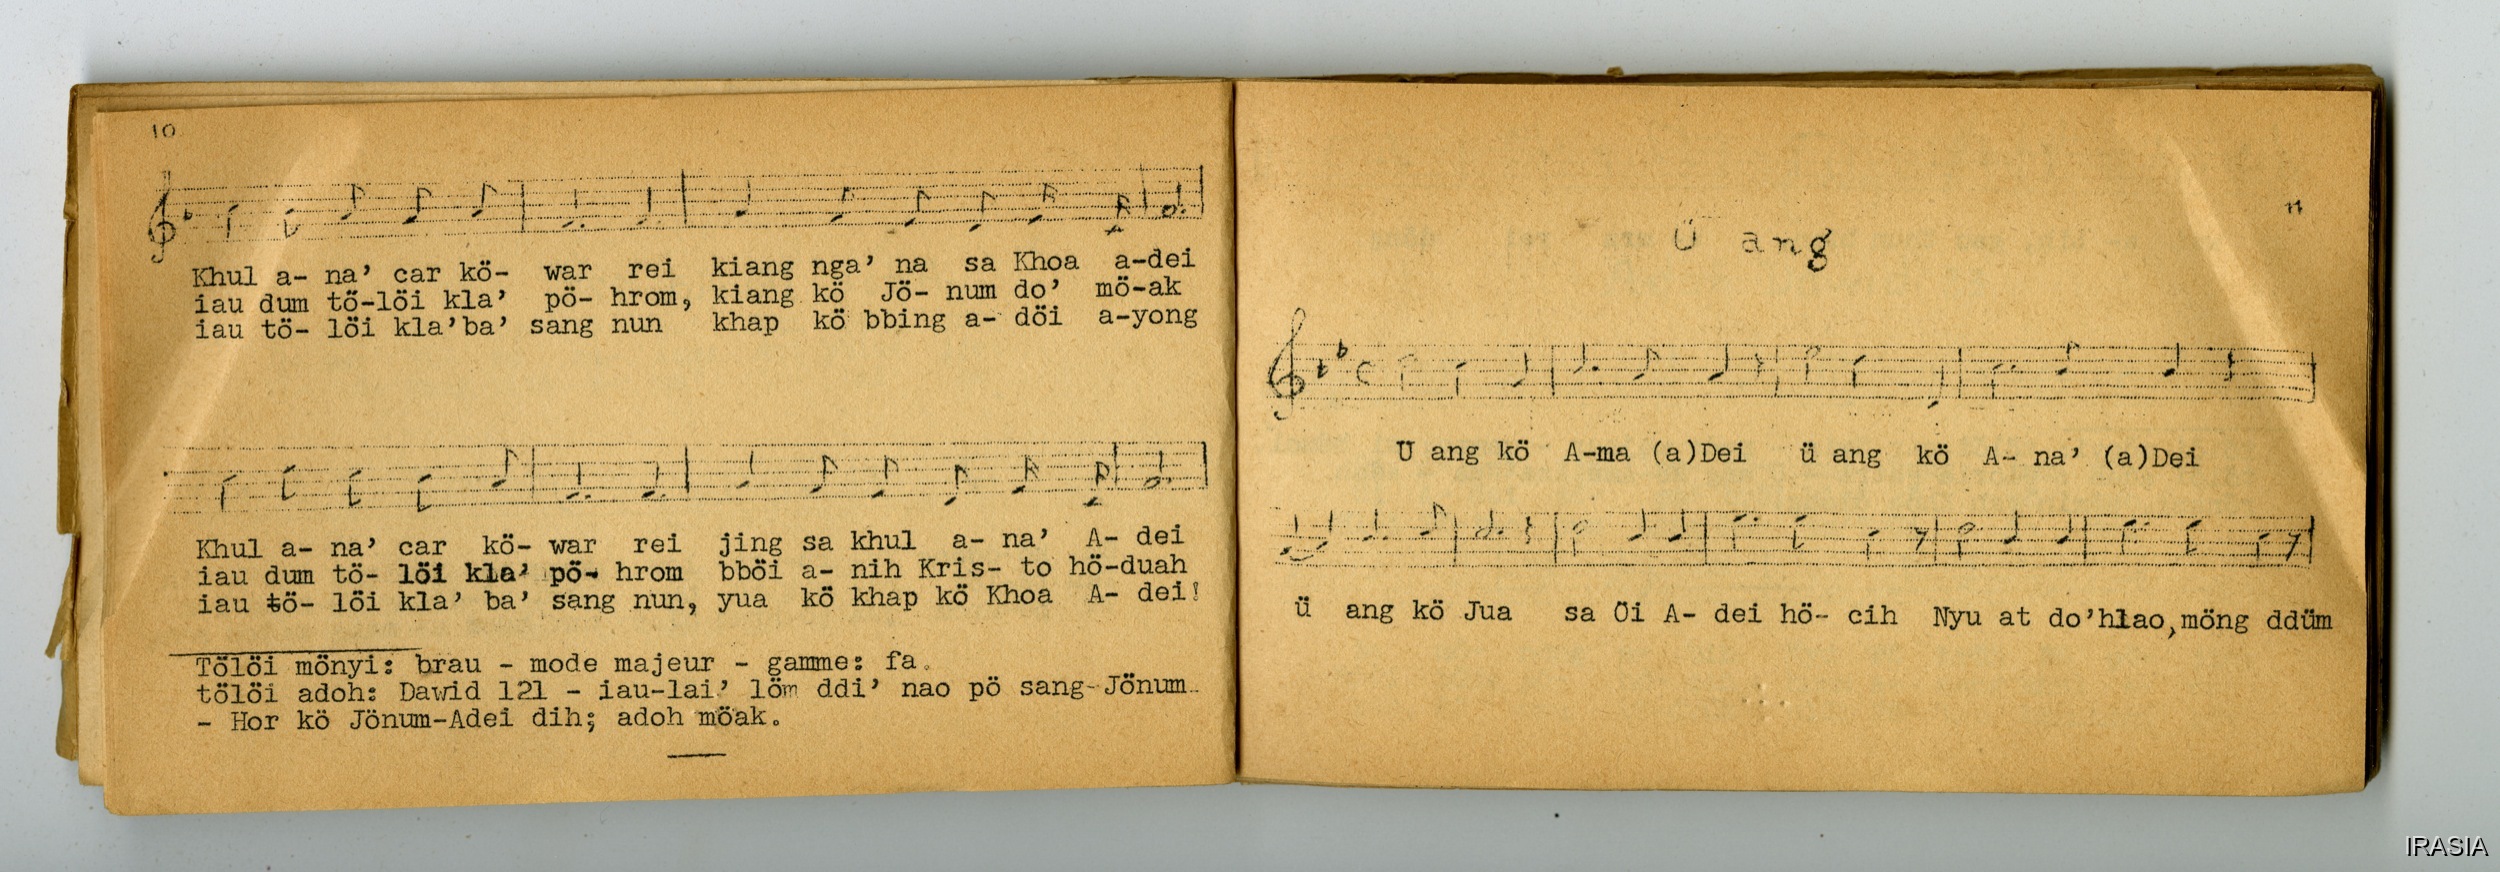 10
Khul a- na' car kö- war rei kiang nga' na sa Khoa a-dei
iau dum tö-löi kla' pö- hrom, kiang kö Jö- num do' mö-ak
iau tö- löi kla'ba' sang nun khap kö bbing a- döi a-yong
Khul a- na' car kö- war rei jing sa khul a- na' A- dei
iau dum tö- löi kla' pö- hrom bböi a- nih Kris- to hö-duah
iau tö- löi kla' ba' sang nun, yua kö khap kö Khoa A- dei!
Tölöi mönyi: brau - mode majeur - gamme: fa.
tölöi adoh: Dawid 121 - iau-lai' löm ddi' nao pö sang-Jönum
- Hor kö Jönum-Adei dih; adoh möak.
11
Ü ang
U ang kö A-ma (a)Dei ü ang kö A- na' (a)Dei
ü ang kö Jua sa Öi A- dei hö- cih Nyu at do'hlao, möng ddüm
IRASIA